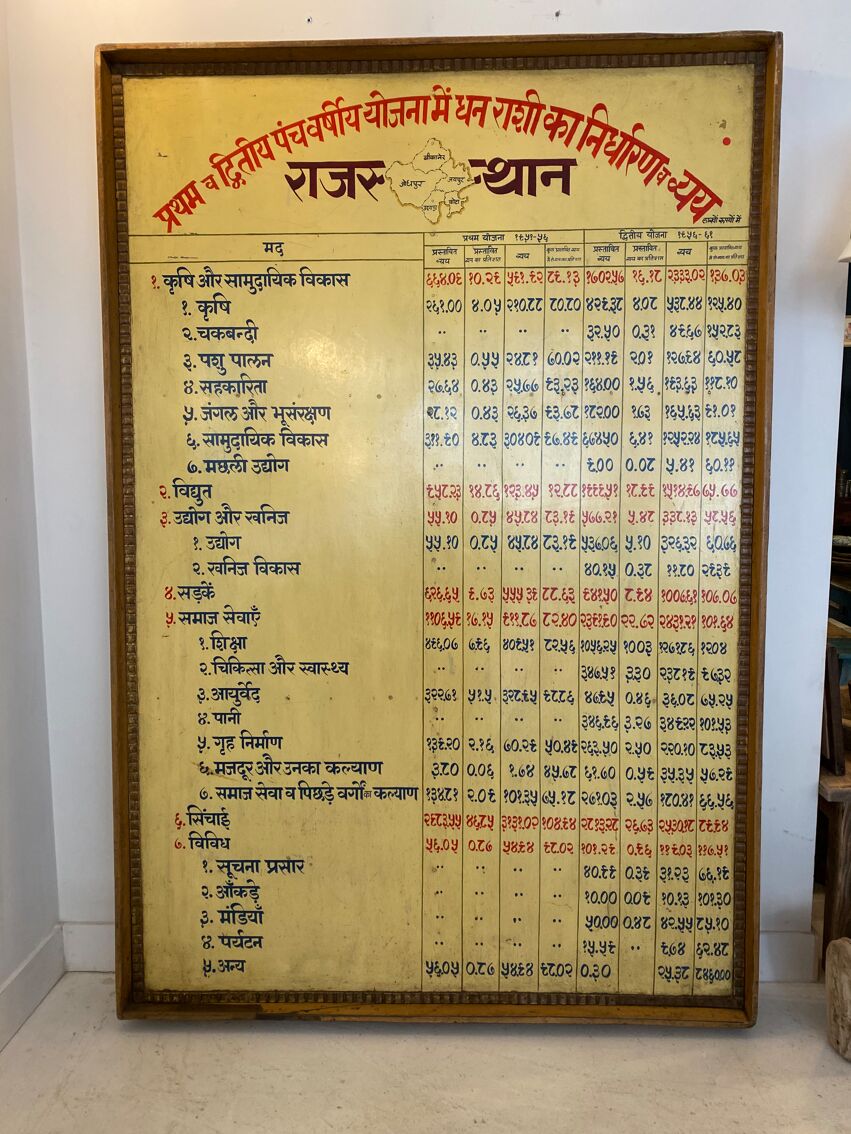 प्रथम व द्वितीय पंच वर्षीय योजना में धन राशी का निर्धारण व व्यय
राजस्थान
बीकानेर
जोधपुर जयपुर
कोटा
लाखों रुपयों में
मद प्रथम योजना १९५१-५६ द्वितीय योजना १९५६-६१
प्रस्तावित व्यय प्रस्तावित व्यय का प्रतिशत व्यय प्रस्तावित व्यय प्रस्तावित व्यय का प्रतिशत व्यय
१. कृषि और सामुदायिक विकास ६६४.०९ १०.२९ ५९१.९२ ८९.१३ १७०२५७ १६.१८ २३३३.०२ १३७.०३
१. कृषि २६१.०० ४.०५ २१०.८८ ८०.८० ४२९.३८ ४.०८ ५३८.४४ १२५.४०
२. चकबन्दी .. .. .. .. ३२.५० ०.३१ ४९.६७ १५२.८३
३. पशु पालन ३५.४३ ०.५५ २४.८१ ७०.०२ २११.१९ २.०१ १२७.६४ ६०.५८
४. सहकारिता २७.६४ ०.४३ २५.७७ ९३.२३ १६४.०० १.५६ १९३.६३ ११८.१०
५. जंगल और भूसंरक्षण २८.१२ ०.४३ २६.३७ ९३.७८ १८२.०० १.७३ १६५.६३ ९१.०१
६. सामुदायिक विकास ३११.९० ४.८३ ३०४.०९ ९७.४९ ६७४.५० ६.४१ १२५२.२४ १८५.६५
७. मछली उद्योग .. .. .. .. ९.०० ०.०८ ५.४१ ६०.११
२. विद्युत ९५८.२३ १४.८६ १२३.४५ १२.८८ १९९९.५१ १८.९९ १५१४.९७ ७५.७७
३. उद्योग और खनिज ५५.१० ०.८५ ४५.८४ ८३.१९ ५७७.२१ ५.४८ ३३८.१३ ५८.५६
१. उद्योग ५५.१० ०.८५ ४५.८४ ८३.१९ ५३७.०६ ५.१० ३२६.३२ ६०.७६
२. खनिज विकास .. .. .. .. ४०.१५ ०.३८ ११.८० २९.३९
४. सड़कें ६२६.६५ ९.७३ ५५५.३९ ८८.६३ ९४१.५० ८.९४ १००७.६१ १०७.०७
५. समाज सेवाएँ ११०६.५९ १७.१५ ९११.८७ ८२.४० २३९१.९० २२.७२ २४३१.२१ १०१.६४
१. शिक्षा ४९६.०७ ७.९६ ४०९.५१ ८२.५६ १०५६.२५ १०.०३ १२७१.८६ १२०.४
२. चिकित्सा और स्वास्थ्य ३४७.५१ ३.३० २३८.१९ ९७.३२
३. आयुर्वेद ३२२.७१ ५१.५ ३२८.९५ ९८.८६ ४७.९५ ०.४६ ३६.०८ ७५.२५
४. पानी .. .. .. .. ३४६.९६ ३.२७ ३४९.२२ १०१.५३
५. गृह निर्माण १३९.२० २.१६ ७०.२९ ५०.४९ २६३.५० २.५० २२०.१० ८३.५३
६. मजदूर और उनका कल्याण ३.८० ०.०६ १.७४ ४५.७८ ६१.७० ०.५९ ३५.३५ ५७.२९
७. समाज सेवा व पिछड़े वर्गों का कल्याण १३४.८१ २.०९ १०१.३५ ७५.१८ २७१.०३ २.५७ १८०.४१ ६६.५६
६. सिंचाई २९८३.५५ ४६.८५ ३१३१.०२ १०४.९४ २८१३.२८ २६.७३ २५३०.१८ ८९.९४
७. विविध ५६.०५ ०.८७ ५४.९४ ९८.०२ १०१.२९ ०.९६ ११९.०३ ११७.५१
१. सूचना प्रसार .. .. .. .. ४०.९९ ०.३९ ३१.२३ ७६.१९
२. आँकड़े .. .. .. .. १०.०० ०.०९ १०.१३ १०१.३०
३. मंडियाँ .. .. .. .. ५०.०० ०.४८ ४२.५५ ८५.१०
४. पर्यटन .. .. .. .. १५.५९ .. ९.७४ ६२.४८
५. अन्य ५६.०५ ०.८७ ५४.९४ ९८.०२ ०.३० २५.३८ ८४६०.००